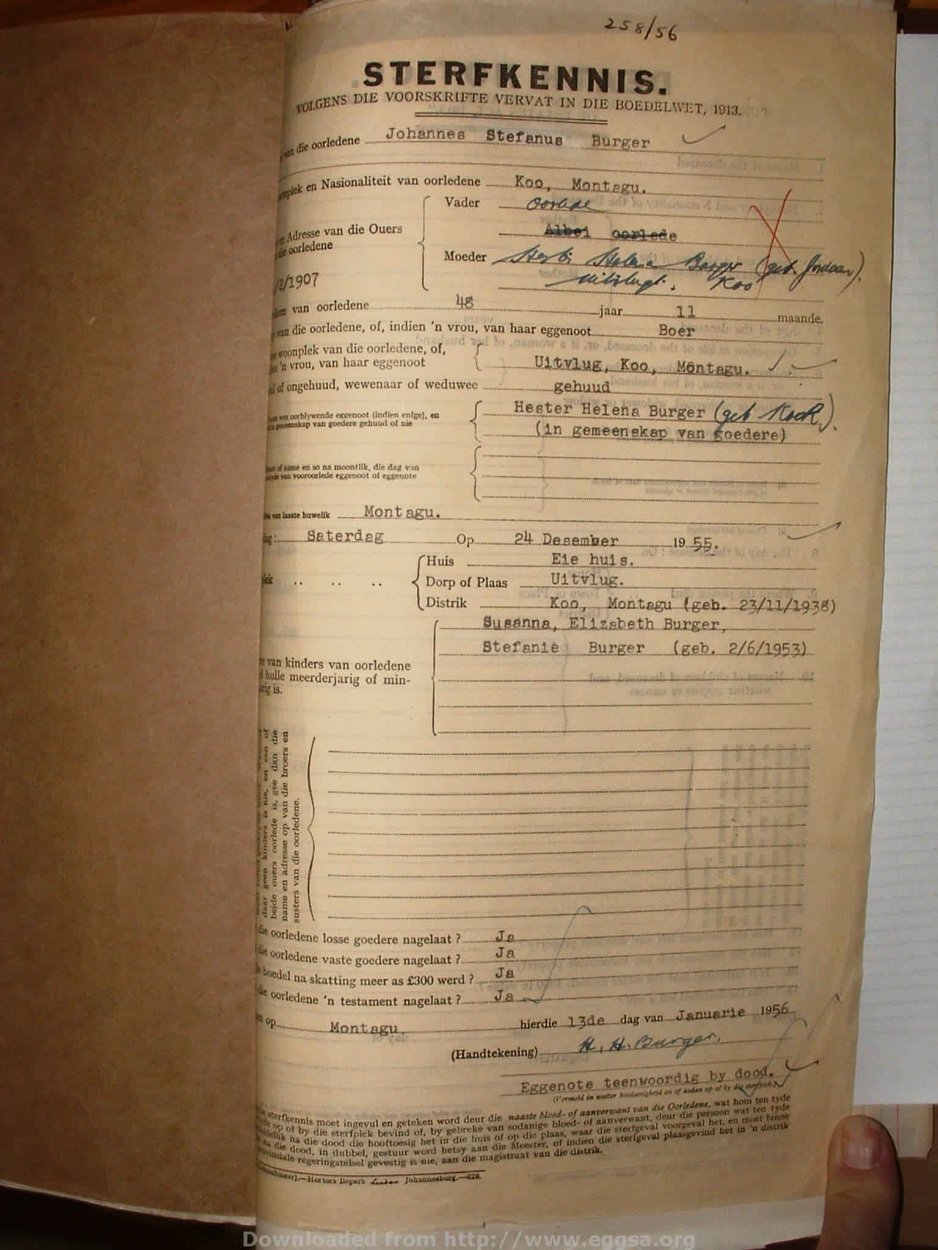 258/56
STERFKENNIS.
VOLGENS DIE VOORSKRIFTE VERVAT IN DIE BOEDELWET, 1913.
van die oorledene Johannes Stefanus Burger
en Nasionaliteit van oorledene Koo, Montagu.
Vader Oorlede
Adresse van die Ouers
die oorledene
Albei oorlede
Moeder Burger (geb. Jordaan).
Uitvlugt. Koo
/2/1907
van oorledene 48 jaar 11 maande.
van die oorledene, of, indien 'n vrou, van haar eggenoot Boer
woonplek van die oorledene, of,
'n vrou, van haar eggenoot
Uitvlug, Koo, Montagu.
of ongehuud, wewenaar of weduwee gehuud
van oorblywende eggenoot (indien enige), en
gemeenskap van goedere gehuud of nie
Hester Helena Burger (geb Kock).
(in gemeenskap van goedere)
of name en so na moontlik, die dag van
van vooroorlede eggenoot of eggenote
van laaste huwelik Montagu.
Saterdag Op 24 Desember 1955.
Huis Eie huis.
Dorp of Plaas Uitvlug.
Distrik Koo, Montagu (geb. 23/11/1938)
Susanna, Elizabeth Burger,
Stefanie Burger (geb. 2/6/1953)
van kinders van oorledene
hulle meerderjarig of min-
is.
daar geen kinders is nie, en een of
beide ouers oorlede is, gee dan die
name en adresse op van die broers en
susters van die oorledene.
die oorledene losse goedere nagelaat ? Ja
die oorledene vaste goedere nagelaat ? Ja
boedel na skatting meer as £300 werd ? Ja
die oorledene 'n testament nagelaat ? Ja
op Montagu hierdie 13de dag van Januarie 1956
(Handtekening) H. H. Burger.
Eggenote teenwoordig by dood.
(Vermeld in watter hoedanigheid en of anders op of by die sterfplek.)
sterfkennis moet ingevul en geteken word deur die naaste bloed- of aanverwant van die Oorledene, wat hom ten tyde
op of by die sterfplek bevind of, by gebreke van sodanige bloed- of aanverwant, deur die persoon wat ten tyde
na die dood die hooftoesig het in die huis of op die plaas, waar die sterfgeval voorgeval het, en moet binne
na die dood, in dubbel, gestuur word hetsy aan die Meester, of indien die sterfgeval plaasgevind het in 'n distrik
regeringstelsel gevestig is nie, aan die magistraat van die distrik.
Hortors Beperk Johannesburg.—628.
Downloaded from http://www.eggsa.org